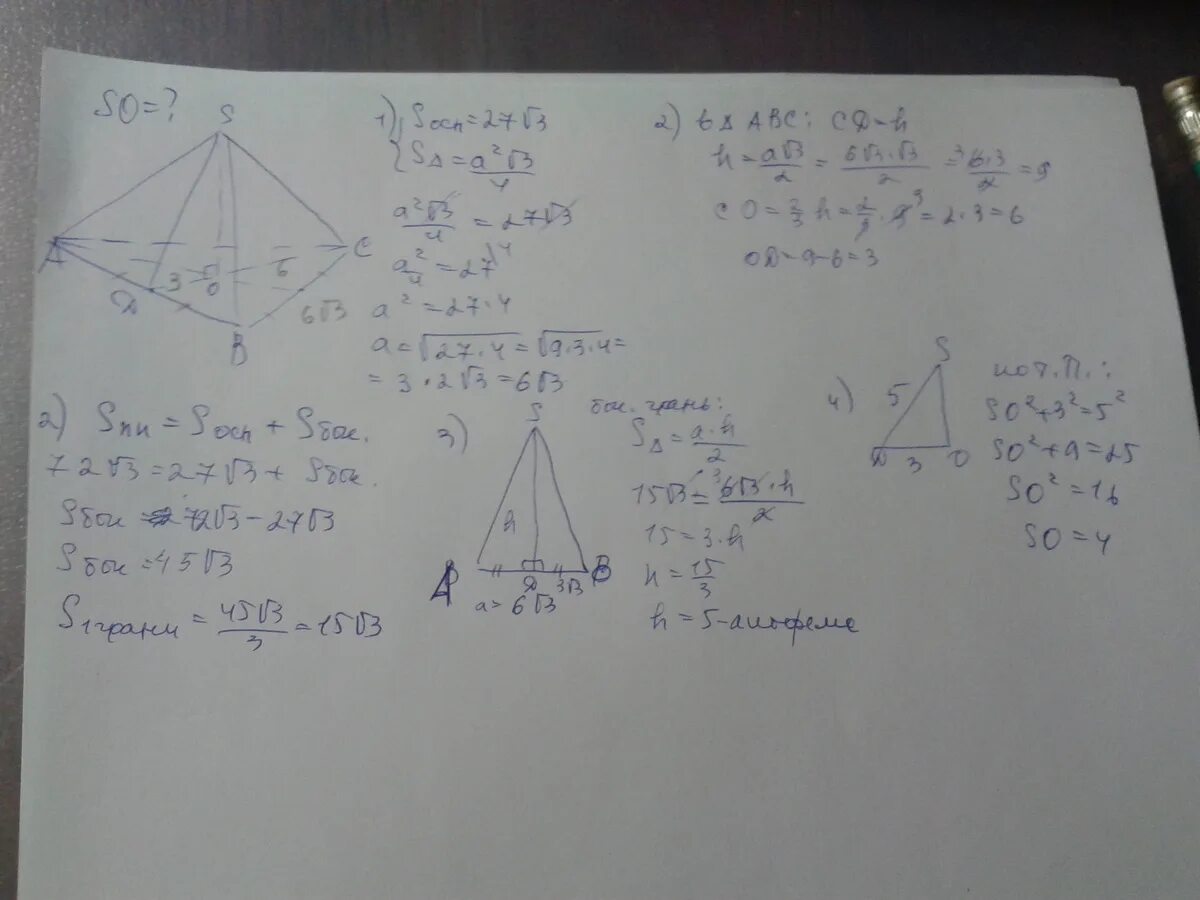 SO=?
S
A
C
D
3
O
6
B
6√3
1) Sосн=27√3
S△=a²√3/4
a²√3/4=27√3
a²/4=27
a²=27·4
a=√27·4=√9·3·4=
=3·2√3=6√3
2) в△ABC: CD-h
h=a√3/2=6√3·√3/2=6·3/2=9
CO=2/3h=2/3·9=2·3=6
OD=9-6=3
2) Sпп=Sосн+Sбок.
72√3=27√3+Sбок.
Sбок=72√3-27√3
Sбок=45√3
S1грани=45√3/3=15√3
3)
S
h
A
D
B
3√3
a=6√3
бок. грань:
S△=a·h/2
15√3=6√3·h/2
15=3·h
h=15/3
h=5-апофема
4)
S
5
D
3
O
по т.П.:
SO²+3²=5²
SO²+9=25
SO²=16
SO=4